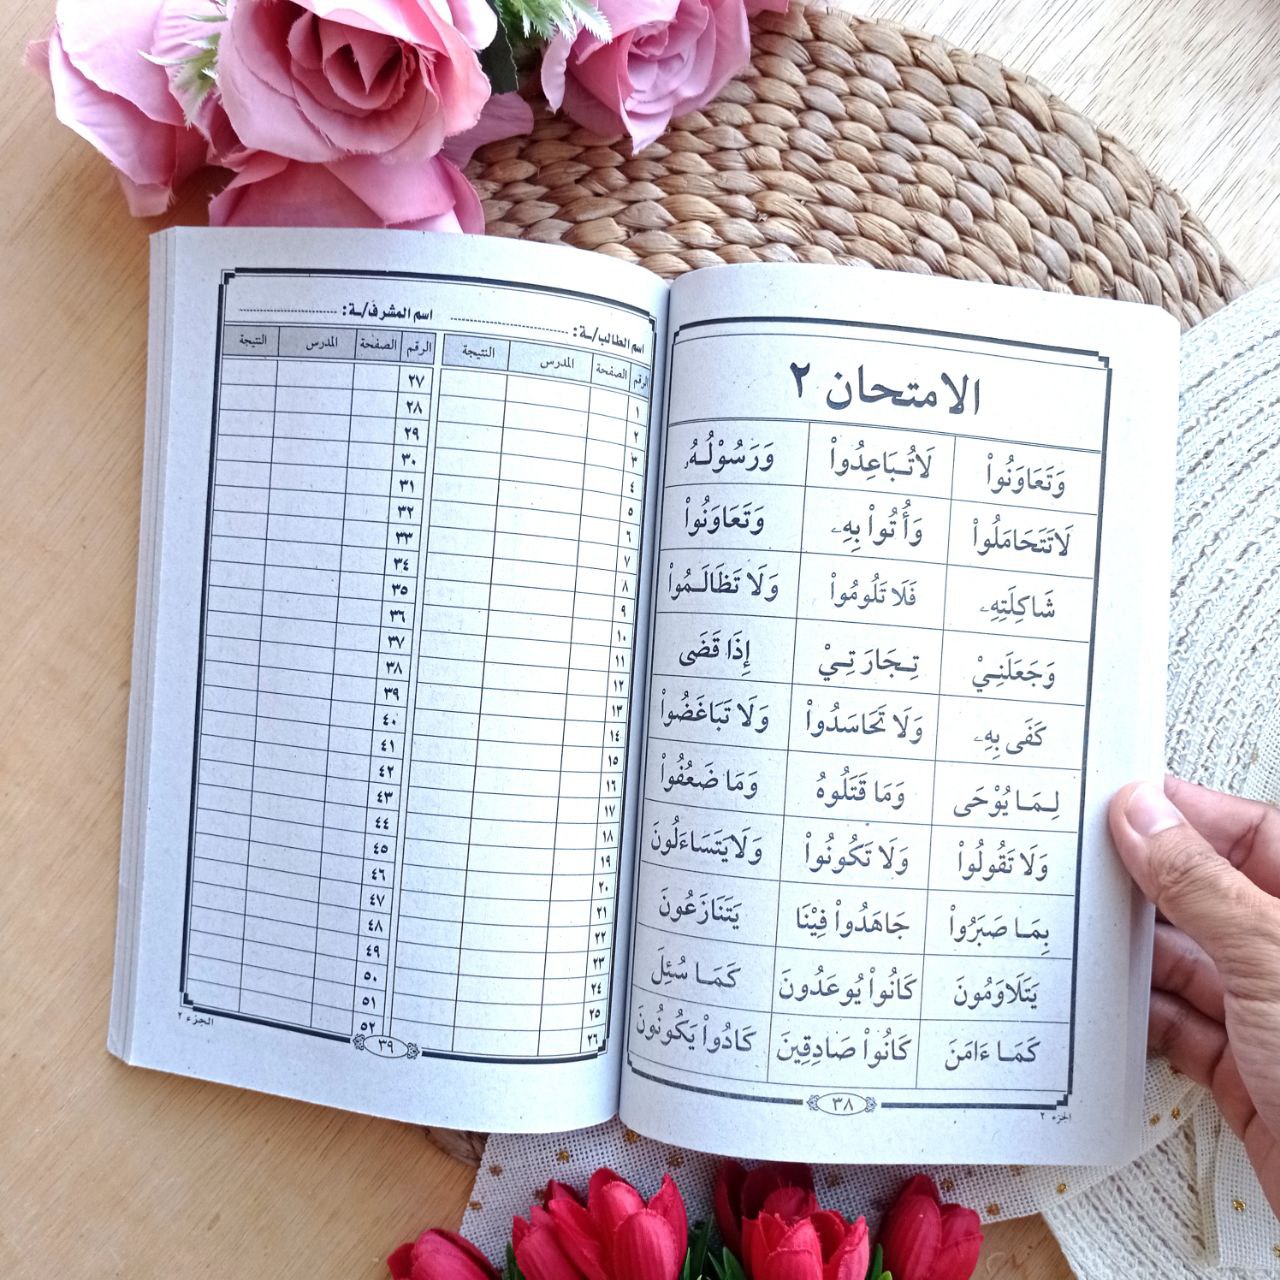 الامتحان ٢
وَتَعَاوَنُواْ لَاتُـبَاعِدُواْ وَرَسُوْلُـهُۥ
لَاتَتَحَامَلُواْ وَأُتُواْ بِهِۦ وَتَعَاوَنُواْ
شَاكِلَتِهِۦ فَلَا تَلُومُواْ وَلَا تَظَالَـمُواْ
وَجَعَلَنِـيْ تِـجَارَتِـيْ إِذَا قَضَى
كَفَى بِهِۦ وَلَا تَحَاسَدُواْ وَلَا تَبَاغَضُواْ
لِـمَـا يُوْحَى وَمَا قَتَلُوهُ وَمَا ضَعُفُواْ
وَلَا تَقُولُواْ وَلَا تَكُونُواْ وَلَايَتَسَاءَلُونَ
بِمَـا صَبَرُواْ جَاهَدُواْ فِيْنَا يَتَنَازَعُونَ
يَتَلَاوَمُونَ كَانُواْ يُوعَدُونَ كَمَـا سُئِلَ
كَمَـا ءَامَنَ كَانُواْ صَادِقِينَ كَادُواْ يَكُونُونَ
٣٨
الجزء ٢
اسم الطالب/ـة: اسم المشرف/ـة:
الرقم الصفحة المدرس النتيجة الرقم الصفحة المدرس النتيجة
١ ٢٧
٢ ٢٨
٣ ٢٩
٤ ٣٠
٥ ٣١
٦ ٣٢
٧ ٣٣
٨ ٣٤
٩ ٣٥
١٠ ٣٦
١١ ٣٧
١٢ ٣٨
١٣ ٣٩
١٤ ٤٠
١٥ ٤١
١٦ ٤٢
١٧ ٤٣
١٨ ٤٤
١٩ ٤٥
٢٠ ٤٦
٢١ ٤٧
٢٢ ٤٨
٢٣ ٤٩
٢٤ ٥٠
٢٥ ٥١
٢٦ ٥٢
٣٩
الجزء ٢